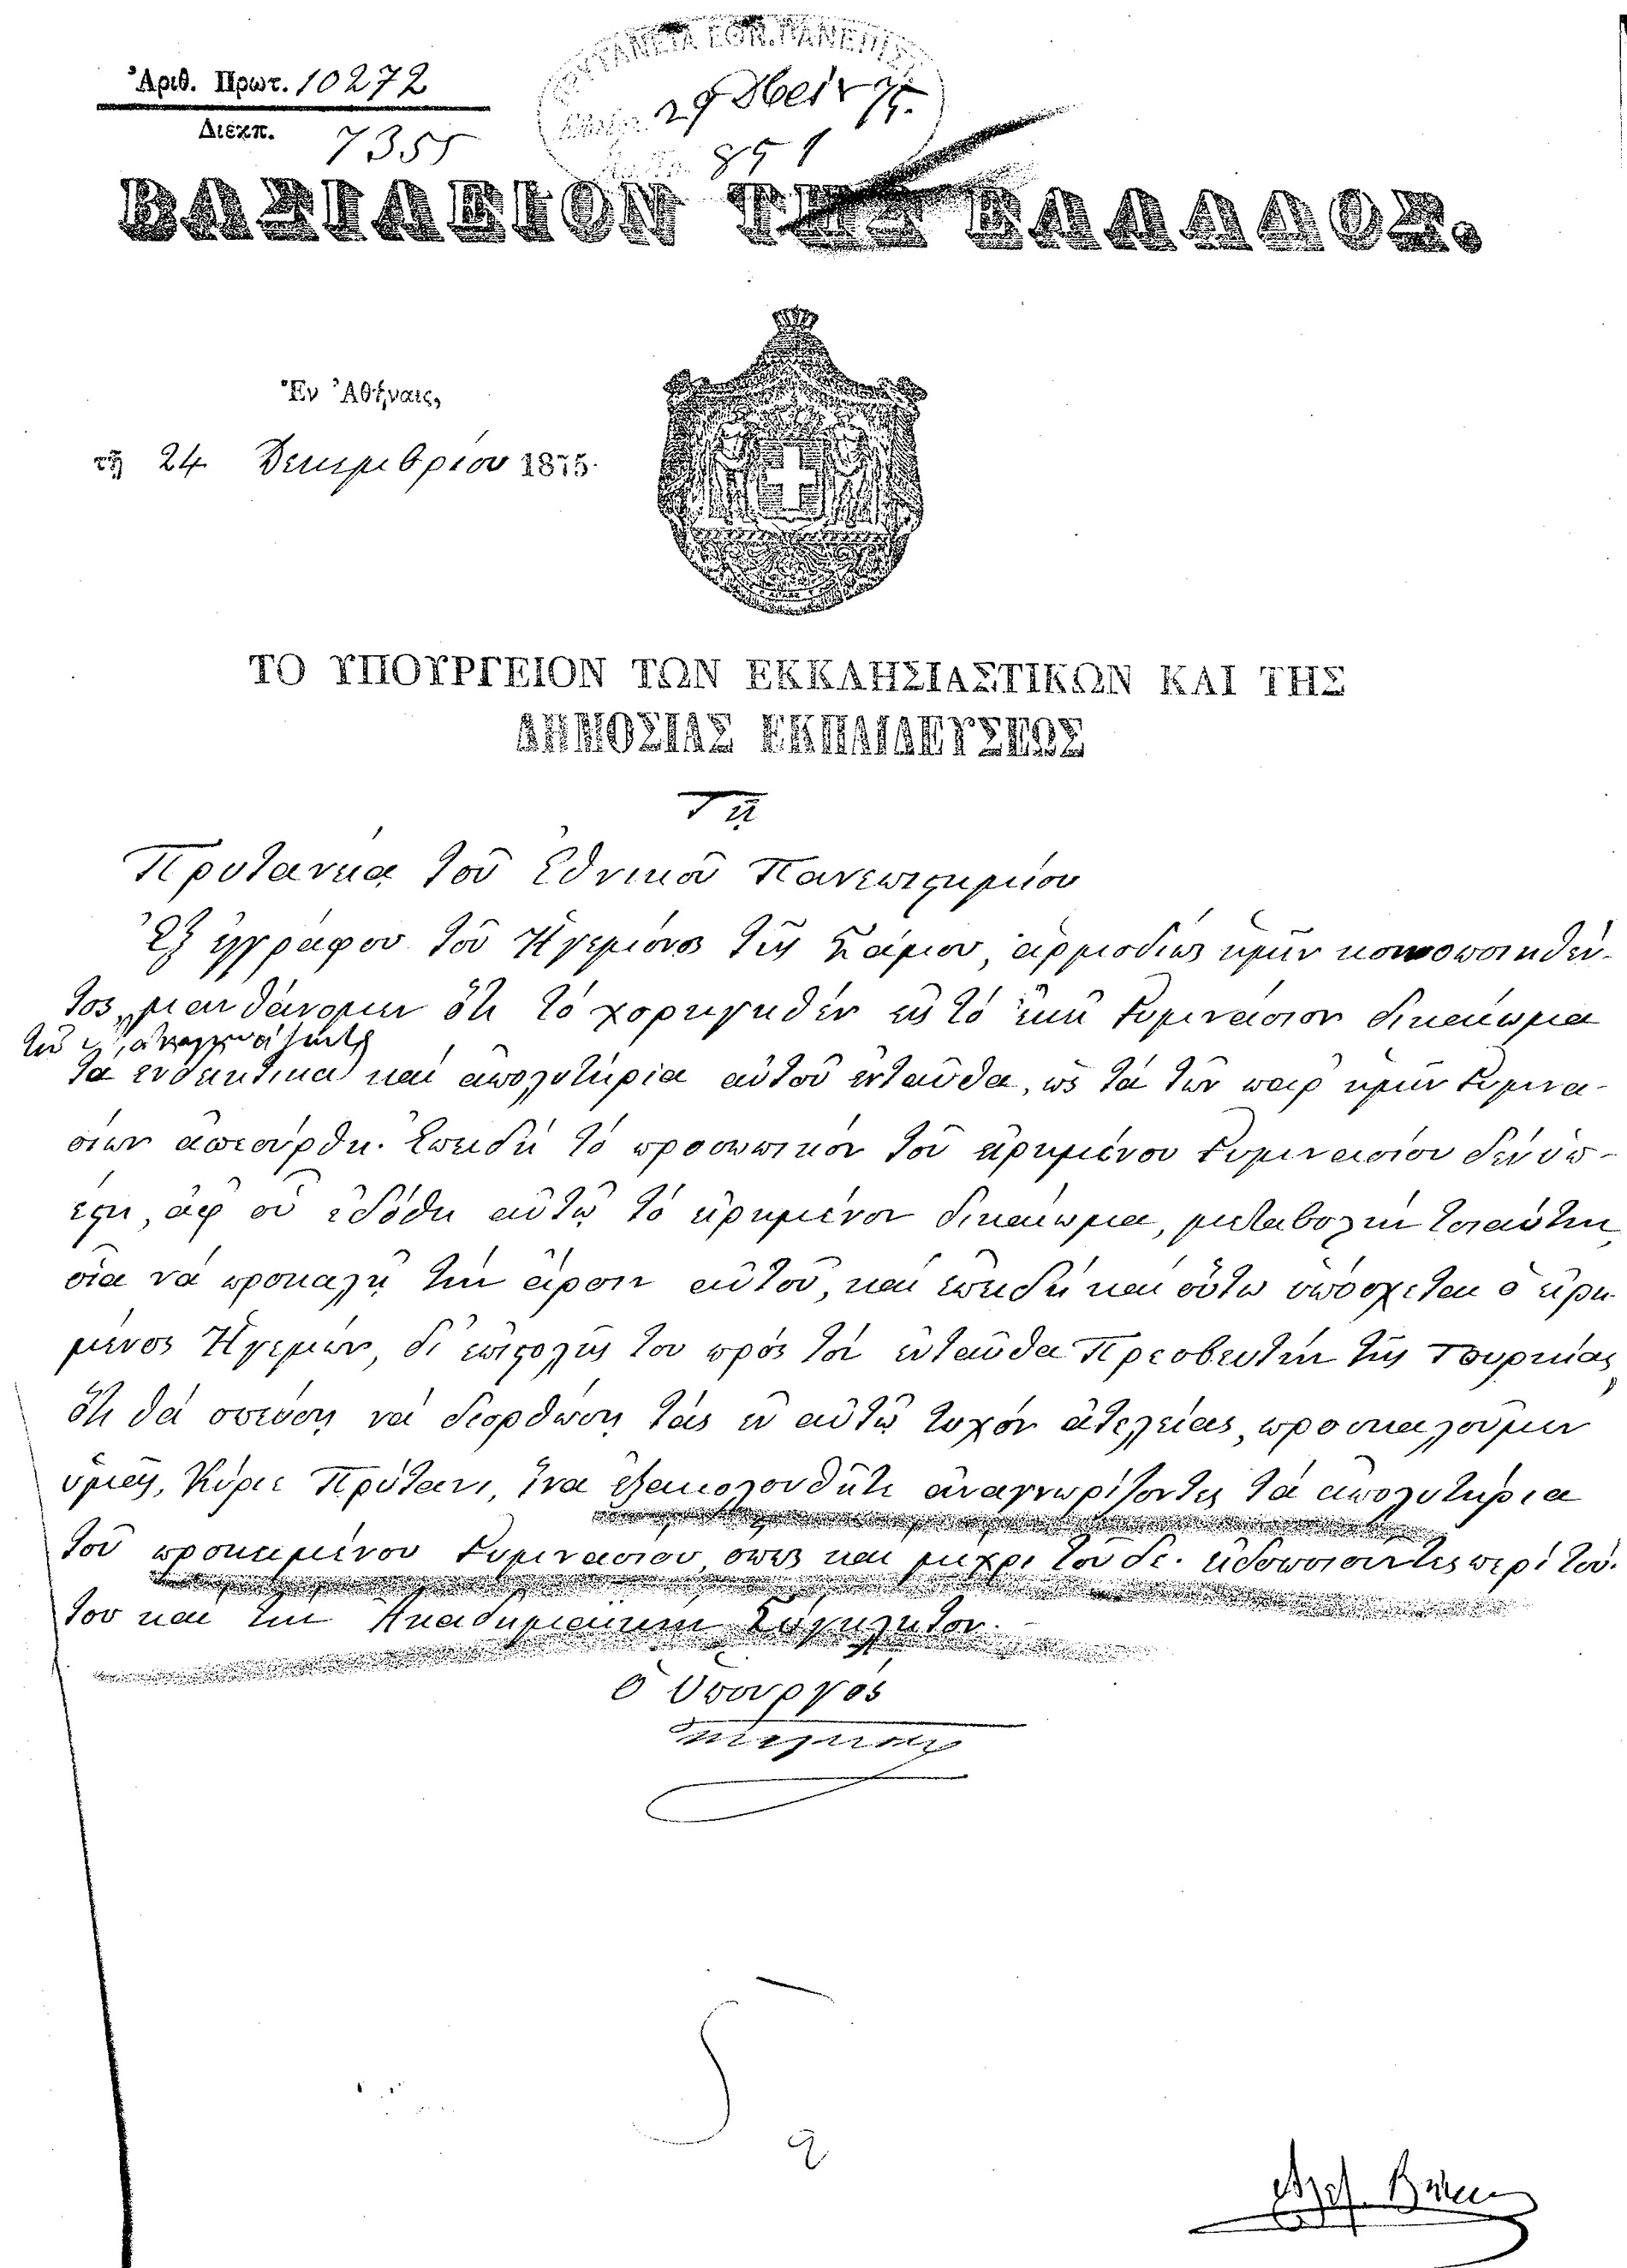 Ἀριθ. Πρωτ. 10272
Διεκπ. 7355
ΠΡΥΤΑΝΕΙΑ ΕΘΝ. ΠΑΝΕΠΙΣΤ
29 851
ΒΑΣΙΛΕΙΟΝ ΤΗΣ ΕΛΛΑΔΟΣ.
Ἐν Ἀθήναις,
τῇ 24 Δεκεμβρίου 1875.
ΤΟ ΥΠΟΥΡΓΕΙΟΝ ΤΩΝ ΕΚΚΛΗΣΙΑΣΤΙΚΩΝ ΚΑΙ ΤΗΣ
ΔΗΜΟΣΙΑΣ ΕΚΠΑΙΔΕΥΣΕΩΣ
Τῇ
Πρυτανείᾳ τοῦ Ἐθνικοῦ Πανεπιστημίου
Ἐξ ἐγγράφου τοῦ Ἡγεμόνος τῆς Σάμου, ἁρμοδίως ἡμῖν κοινοποιηθέν-
τος, μανθάνομεν ὅτι τὸ χορηγηθὲν εἰς τὸ ἐκεῖ Γυμνάσιον δικαίωμα
τοῦ ἀναγνωρίζεσθαι
τὰ ἐνδεικτικὰ καὶ ἀπολυτήρια αὐτοῦ ἐνταῦθα, ὡς τὰ τῶν παρ' ἡμῖν Γυμνα-
σίων ἀπεσύρθη. Ἐπειδὴ τὸ προσωπικὸν τοῦ εἰρημένου Γυμνασίου δὲν ὑπ-
έστη, ἀφ' οὗ ἐδόθη αὐτῷ τὸ εἰρημένον δικαίωμα, μεταβολὴν τοιαύτην,
οἵα νὰ προκαλῇ τὴν ἄρσιν αὐτοῦ, καὶ ἐπειδὴ καὶ οὕτω ὑπόσχεται ὁ εἰρη-
μένος Ἡγεμών, δι' ἐπιστολῆς του πρὸς τὸν ἐνταῦθα Πρεσβευτὴν τῆς Τουρκίας,
ὅτι θὰ σπεύσῃ νὰ διορθώσῃ τὰς ἐν αὐτῷ τυχὸν ἀτελείας, προσκαλοῦμεν
ὑμᾶς, Κύριε Πρύτανι, ἵνα ἐξακολουθῆτε ἀναγνωρίζοντες τὰ ἀπολυτήρια
τοῦ προκειμένου Γυμνασίου, ὅπως καὶ μέχρι τοῦδε. εἰδοποιοῦντες περὶ τού-
του καὶ τὴν Ἀκαδημαϊκὴν Σύγκλητον.
Ὁ Ὑπουργός